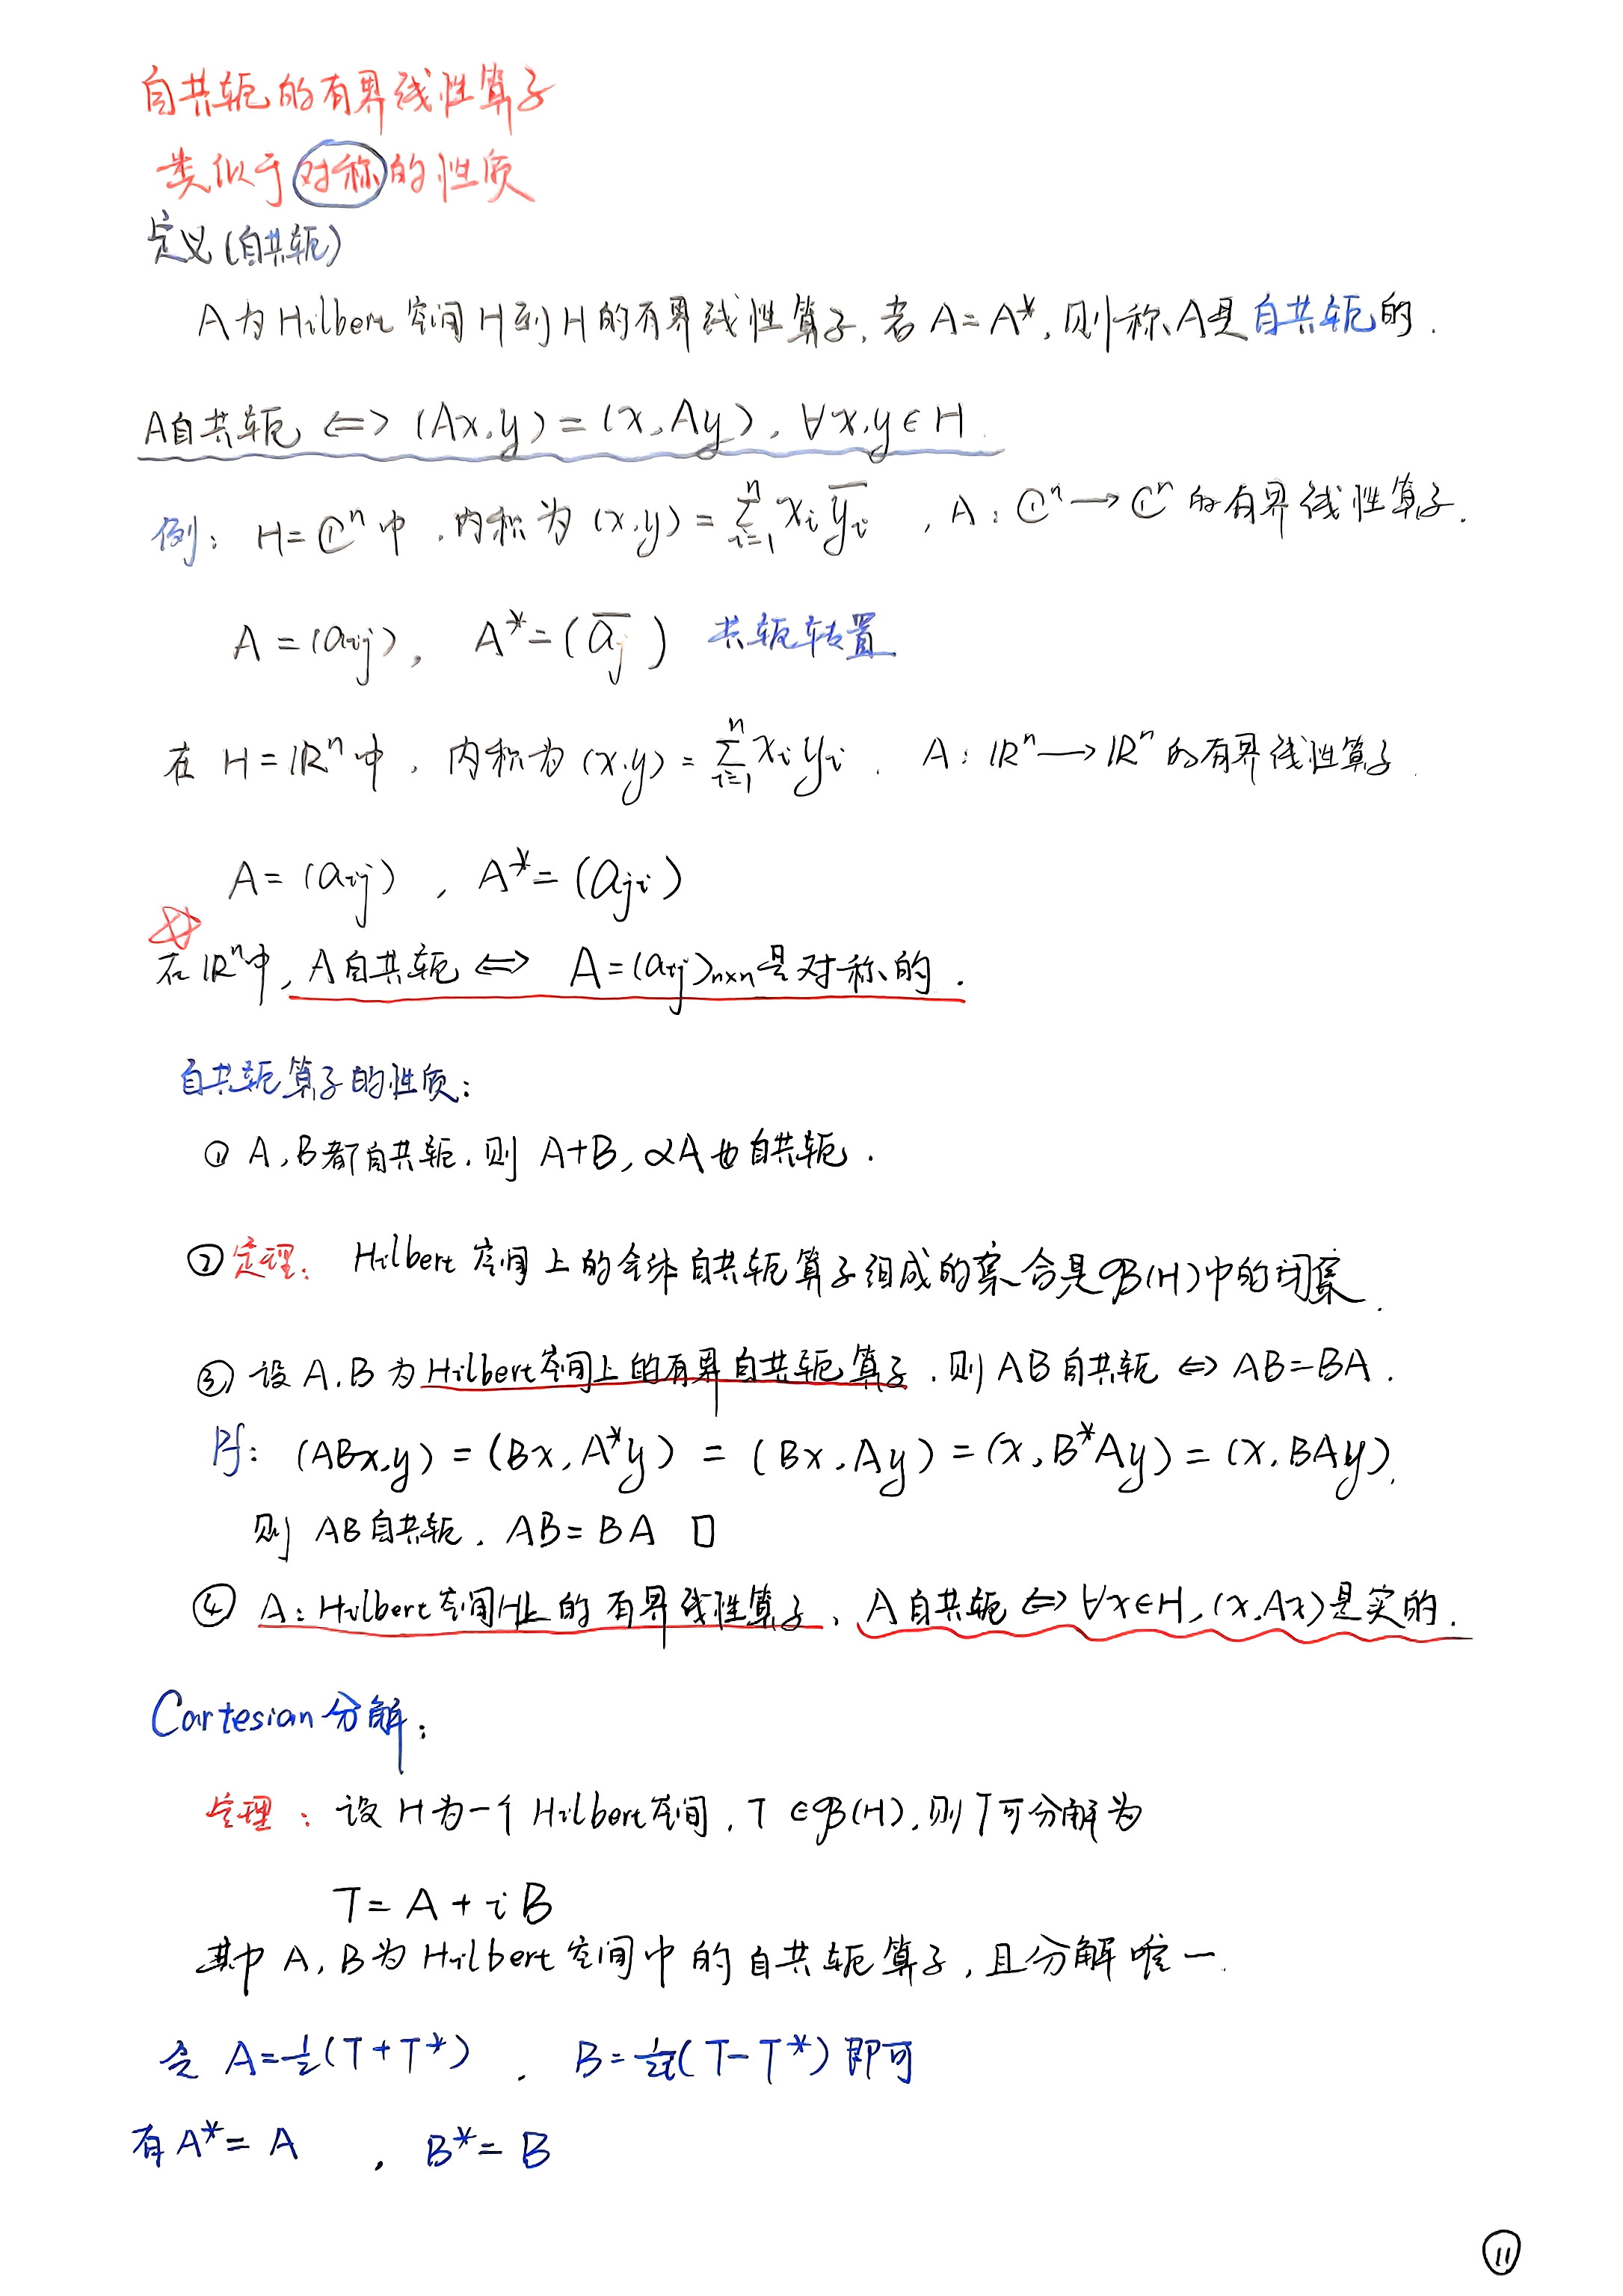 自共轭的有界线性算子
类似于对称的性质
定义(自共轭)
A为Hilbert空间H到H的有界线性算子,若A=A*,则称A是自共轭的.
A自共轭 ⇔ (Ax,y)=(x,Ay), ∀x,y∈H.
例: H=ℂⁿ中,内积为(x,y)=∑ᵢ₌₁ⁿ xᵢ y̅ᵢ, A: ℂⁿ→ℂⁿ的有界线性算子.
A=(aij), A*=(a̅j ) 共轭转置
在H=ℝⁿ中,内积为(x,y)=∑ᵢ₌₁ⁿ xᵢyᵢ. A: ℝⁿ→ℝⁿ的有界线性算子.
A=(aij), A*=(aji)
在ℝⁿ中, A自共轭 ⇔ A=(aij)n×n是对称的.
自共轭算子的性质:
① A,B都自共轭,则 A+B, αA也自共轭.
② 定理: Hilbert空间上的全体自共轭算子组成的集合是𝓑(H)中的闭集.
③ 设A,B为Hilbert空间上的有界自共轭算子,则AB自共轭 ⇔ AB=BA.
Pf: (ABx,y)=(Bx,A*y)=(Bx,Ay)=(x,B*Ay)=(x,BAy).
则 AB自共轭. AB=BA □
④ A: Hilbert空间H上的有界线性算子, A自共轭 ⇔ ∀x∈H,(x,Ax)是实的.
Cartesian分解:
定理: 设H为一个Hilbert空间, T∈𝓑(H),则T可分解为
T=A+iB
其中A,B为Hilbert空间中的自共轭算子,且分解唯一.
令 A=½(T+T*), B=1/2i(T-T*)即可
有A*=A, B*=B
11